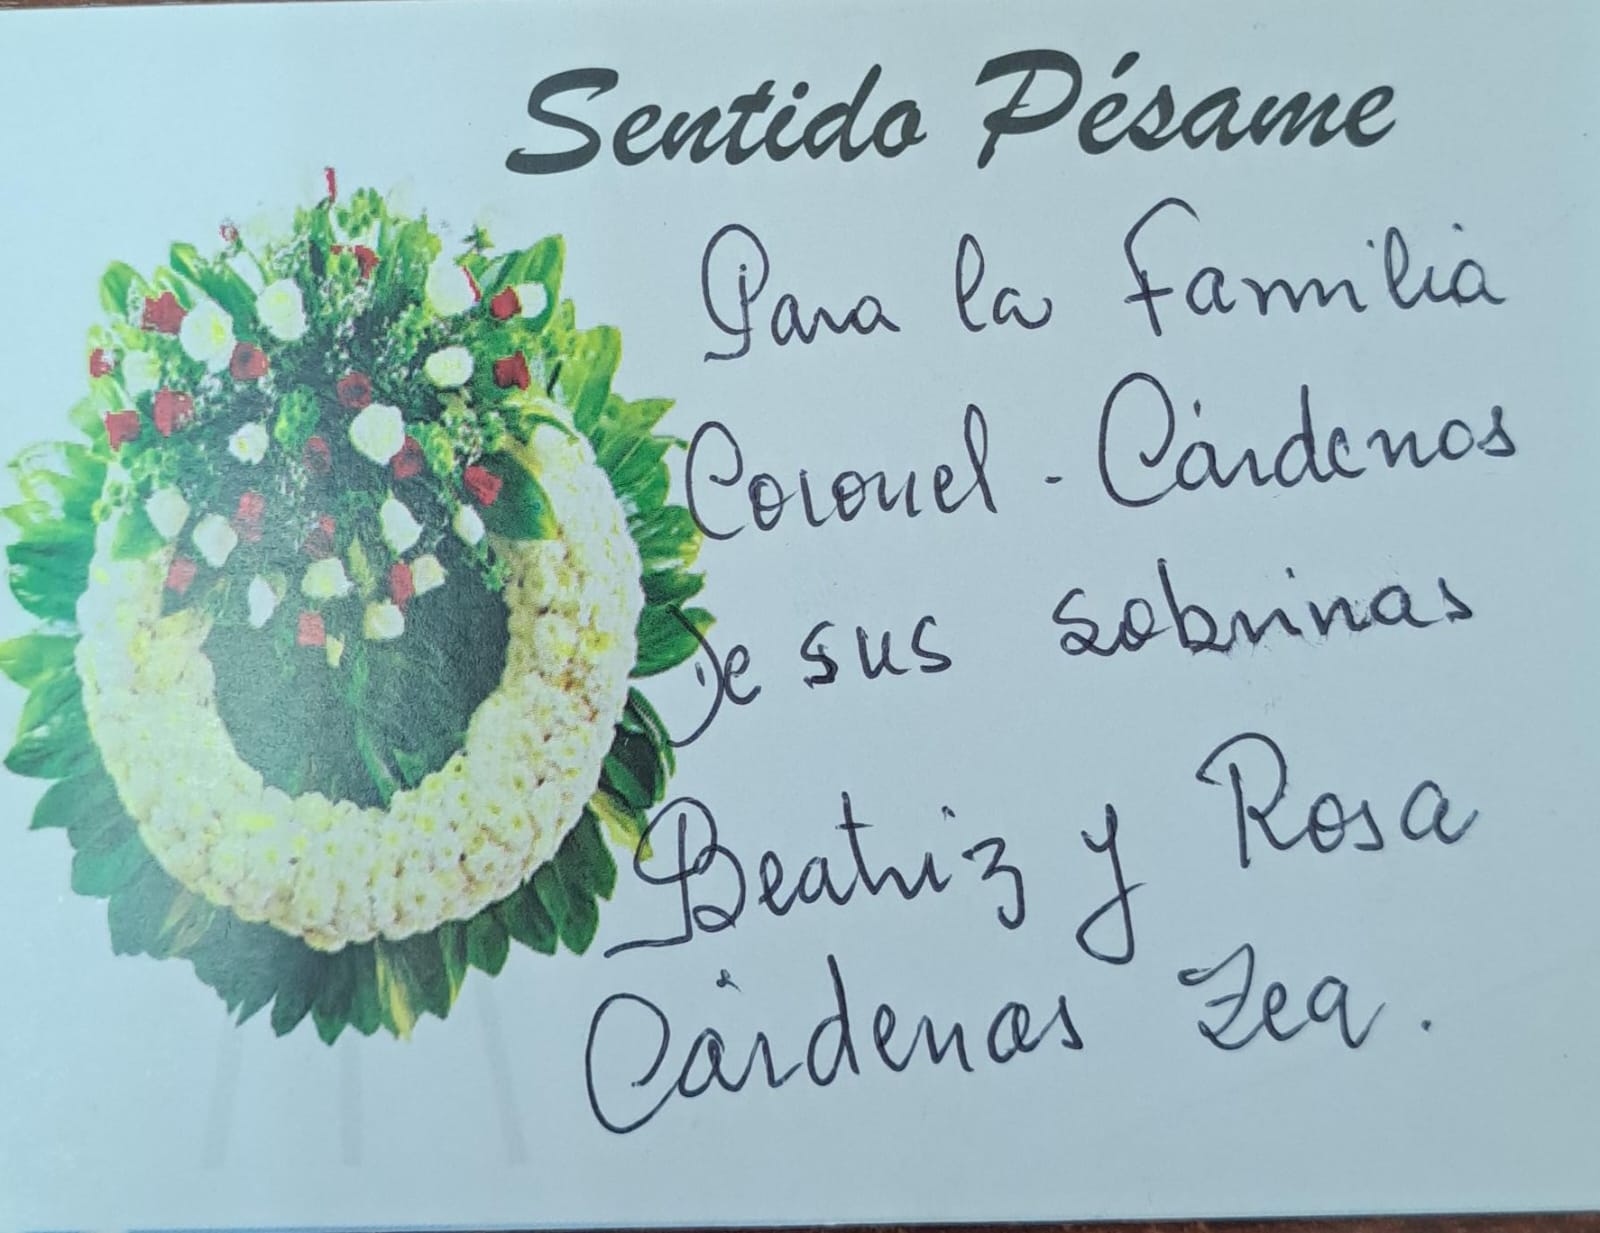 Sentido Pésame
Para la Familia
Coronel - Cárdenas
De sus sobrinas
Beatriz y Rosa
Cárdenas Zea.